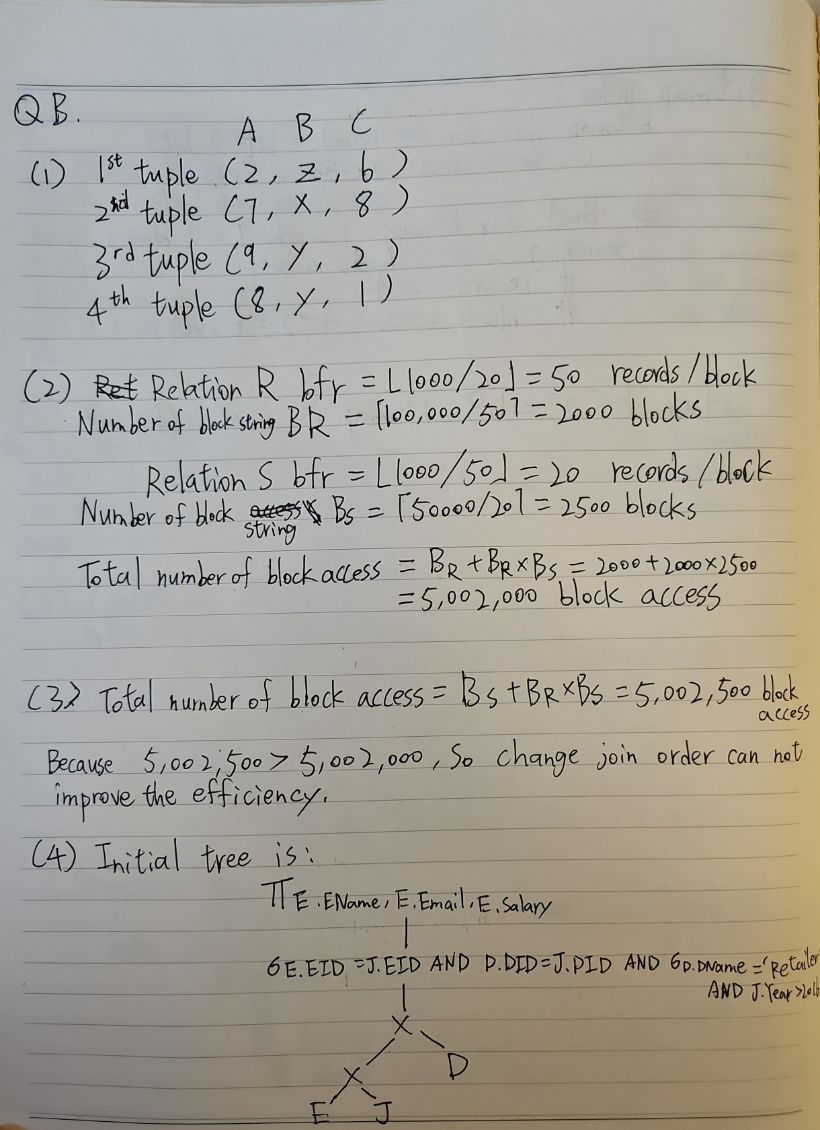 QB.
A B C
(1) 1st tuple (2, z, 6)
2nd tuple (7, X, 8)
3rd tuple (9, Y, 2)
4th tuple (8, Y, 1)
(2) Ret Relation R bfr = ⌊1000/20⌋ = 50 records/block
Number of block string BR = ⌈100,000/50⌉ = 2000 blocks
Relation S bfr = ⌊1000/50⌋ = 20 records/block
Number of block access string Bs = ⌈50000/20⌉ = 2500 blocks
Total number of block access = BR + BR × Bs = 2000 + 2000 × 2500
= 5,002,000 block access
(3) Total number of block access = Bs + BR × Bs = 5,002,500 block access
Because 5,002,500 > 5,002,000, So change join order can not
improve the efficiency.
(4) Initial tree is:
π E.EName, E.Email, E.Salary
σ E.EID = J.EID AND D.DID = J.DID AND σ D.DName = 'Retailer
AND J.Year > 2016
X
X D
E J